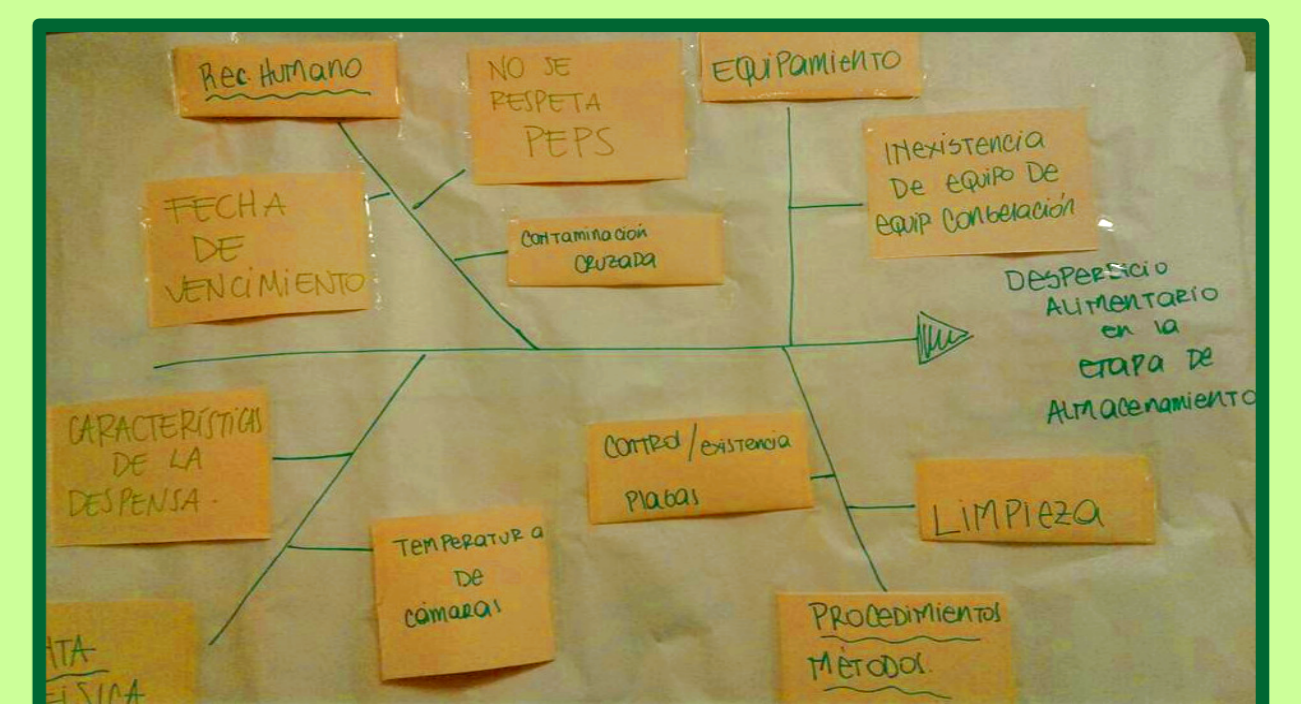 Rec. Humano
NO SE
RESPETA
PEPS
EQUIPamiENTO
FECHA
DE
VENCiMiENTO
CONTaminación
CRUZADA
INexisTencia
De eQUiPO De
equip Congelación
DesPeRdicio
ALimenTaRio
en la
eTaPa De
ALmacenamienTO
CARACTERÍSTiCAS
DE LA
DESPENSA.
TemPeRaTURa
De
cámaRas
CONTROl/existencia
Plagas
LimPiezA
PROCeDimienTOS
MÉTODOS.
FÍSICA